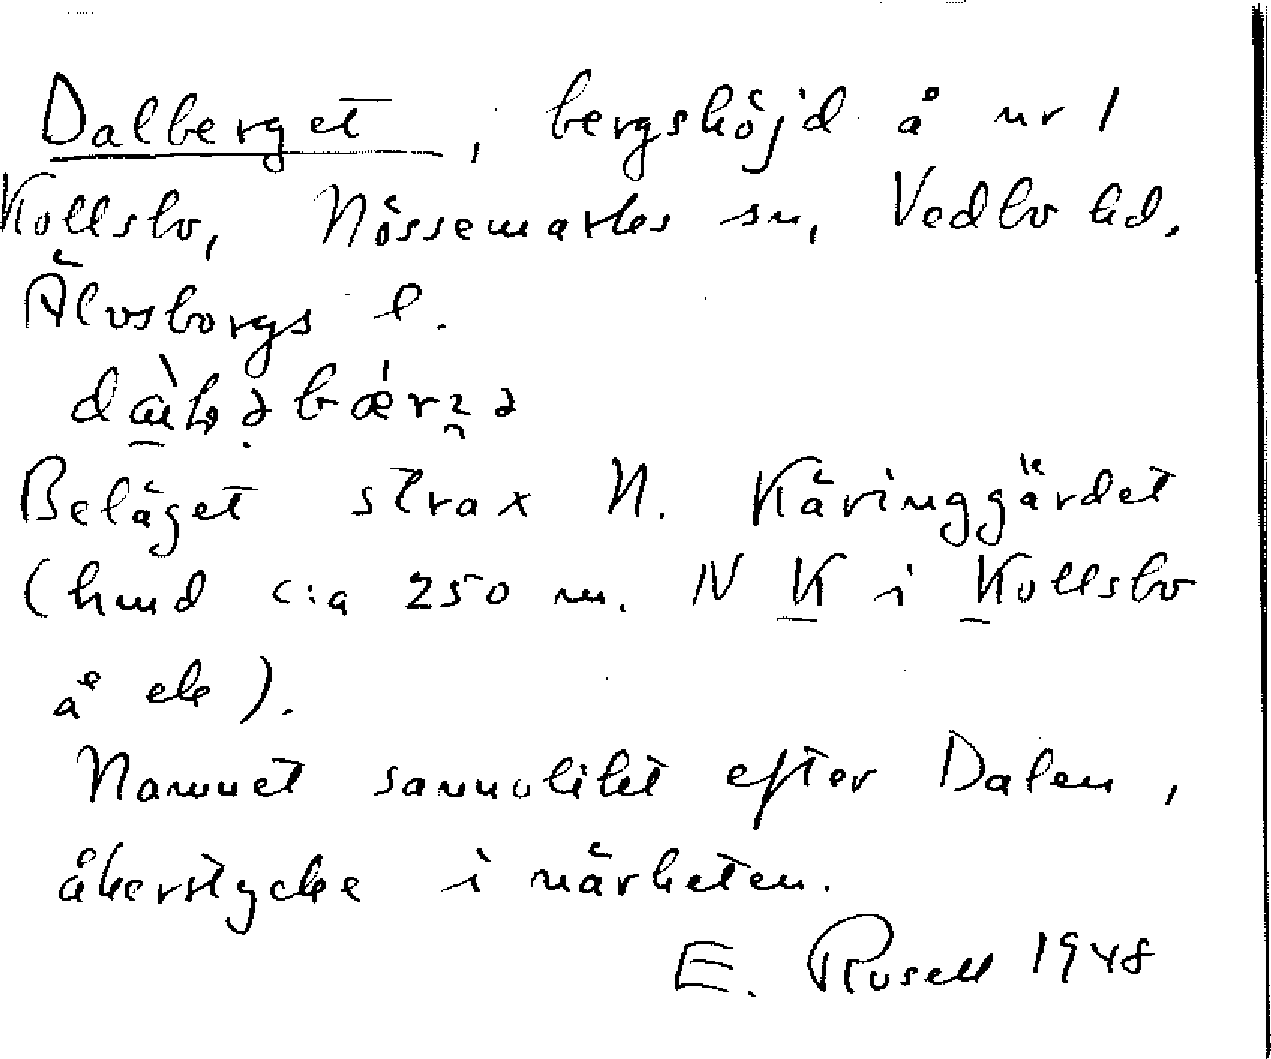 Dalberget, bergshöjd å nr 1
Kollsbo, Nössemarks sn, Vedbo hd.
Älvsborgs l.
Beläget strax N. Käringgärdet
(hmd c:a 250 m. N K i Kollsbo
å ek).
Namnet sannolikt efter Dalen,
åkerstycke i närheten.
E. Rusell 1948